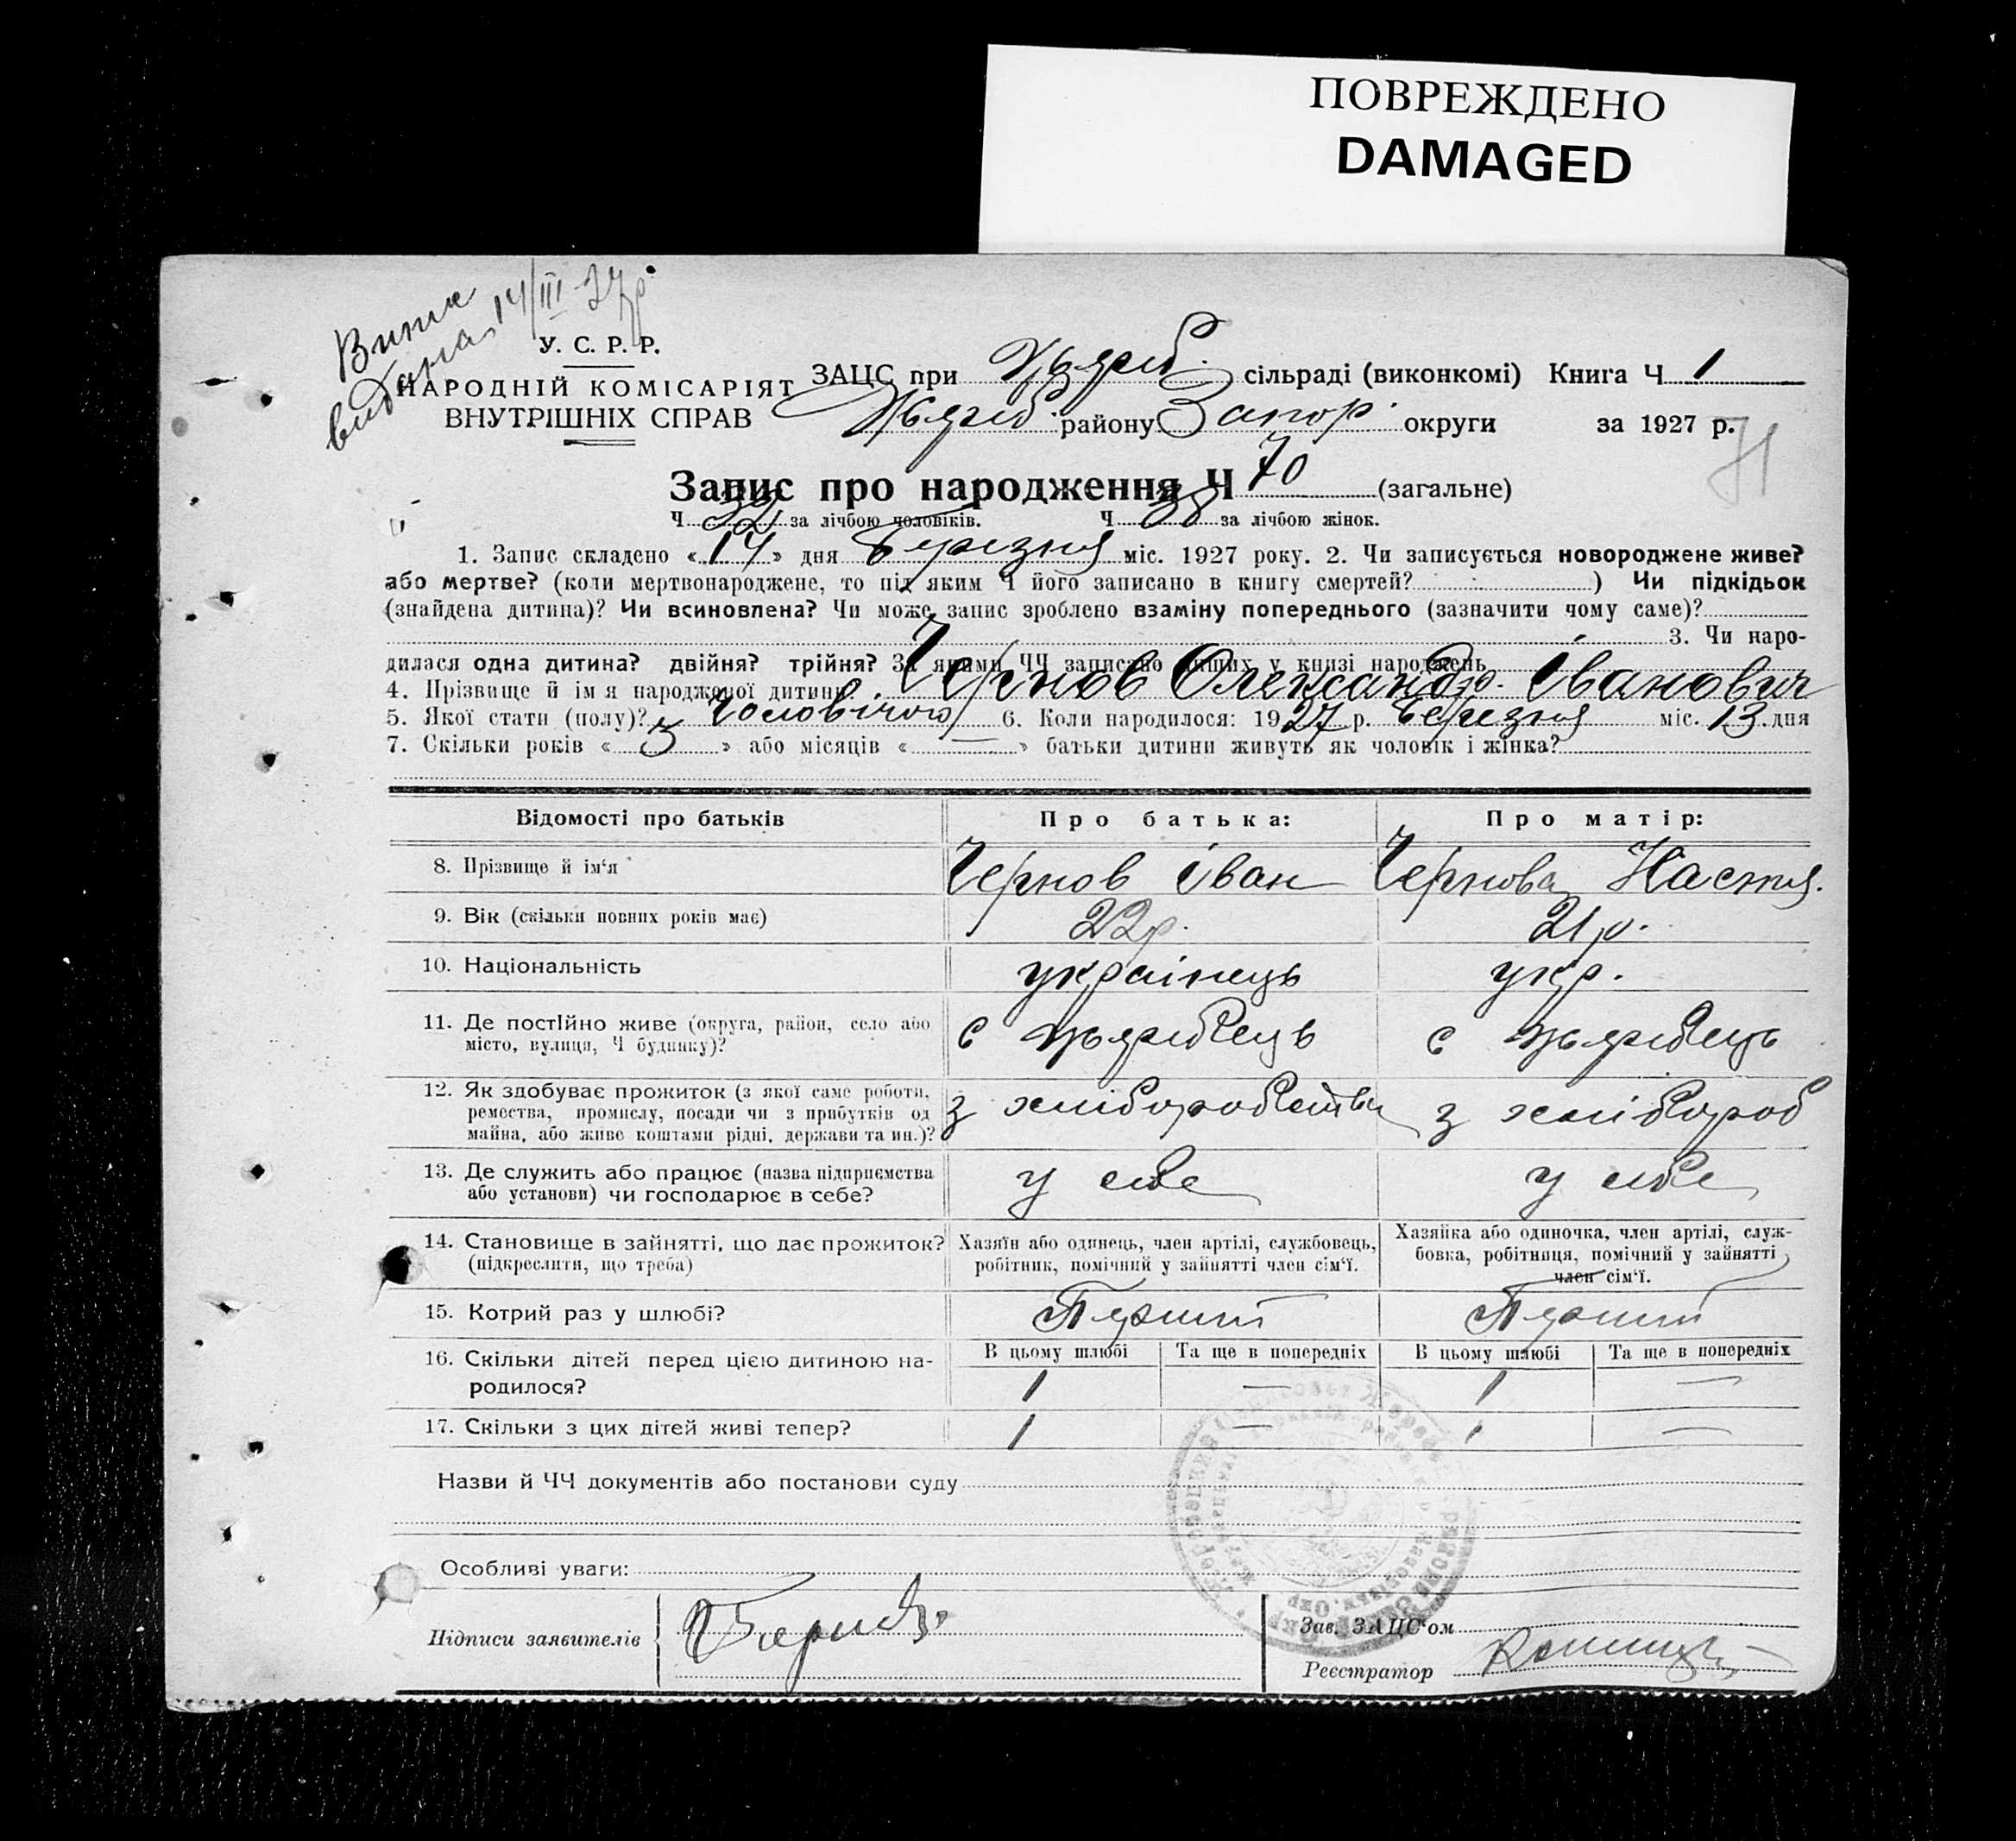 ПОВРЕЖДЕНО
DAMAGED
видана 14/III-27р.
У. С. Р. Р.
НАРОДНІЙ КОМІСАРІЯТ
ВНУТРІШНІХ СПРАВ
ЗАЦС при сільраді (виконкомі) Книга Ч 1
району Запор. округи за 1927 р.
71
Запис про народження Ч 70 (загальне)
Ч 32 за лічбою чоловіків. Ч 38 за лічбою жінок.
1. Запис складено « 14 » дня Березня міс. 1927 року. 2. Чи записується новороджене живе?
або мертве? (коли мертвонароджене, то під яким Ч його записано в книгу смертей? ) Чи підкідьок
(знайдена дитина)? Чи всиновлена? Чи може, запис зроблено взаміну попереднього (зазначити чому саме)?
3. Чи наро-
дилася одна дитина? двійня? трійня? За якими ЧЧ записано інших у книзі народжень
4. Прізвище й ім я народженої дитини Чернов Олександр. Іванович
5. Якої стати (полу)? Чоловічого 6. Коли народилося: 1927 р. Березня міс. 13 дня
7. Скільки років « 3 » або місяців « — » батьки дитини живуть як чоловік і жінка?
Відомості про батьків Про батька: Про матір:
8. Прізвище й ім‘я Чернов Іван Чернова Настя.
9. Вік (скільки повних років має) 22р. 21р.
10. Національність українець укр.
11. Де постійно живе (округа, район, село або
місто, вулиця, Ч будинку)? с с
12. Як здобуває прожиток (з якої саме роботи,
ремества, промислу, посади чи з прибутків од
майна, або живе коштами рідні, держави та ин.)? з хліборобства з хлібороб
13. Де служить або працює (назва підприємства
або установи) чи господарює в себе? у себе у себе
14. Становище в зайнятті, що дає прожиток?
(підкреслити, що треба)
Хазяїн або одинець, член артілі, службовець,
робітник, помічний у зайнятті член сім‘ї.
Хазяйка або одиночка, член артілі, служ-
бовка, робітниця, помічний у зайнятті
член сім‘ї.
15. Котрий раз у шлюбі? Перший Перший
16. Скільки дітей перед цією дитиною на-
родилося?
В цьому шлюбі Та ще в попередніх В цьому шлюбі Та ще в попередніх
1 — 1 —
17. Скільки з цих дітей живі тепер? 1 — 1 —
Назви й ЧЧ документів або постанови суду
Особливі уваги:
Підписи заявителів
Зав. ЗАЦС‘ом
Реєстратор